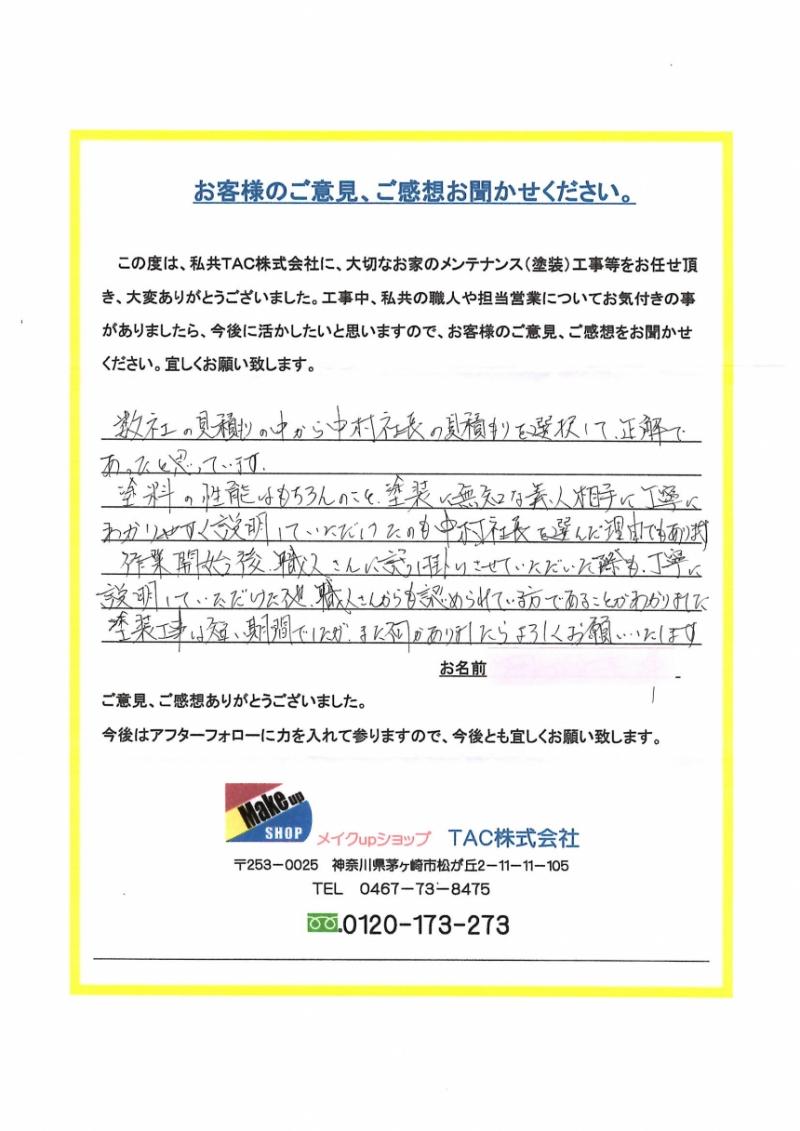 お客様のご意見、ご感想お聞かせください。
この度は、私共TAC株式会社に、大切なお家のメンテナンス（塗装）工事等をお任せ頂
き、大変ありがとうございました。工事中、私共の職人や担当営業についてお気付きの事
がありましたら、今後に活かしたいと思いますので、お客様のご意見、ご感想をお聞かせ
ください。宜しくお願い致します。
数社の見積りの中から中村社長の見積もりを選択して、正解で
あったと思っています。
塗料の性能はもちろんのこと、塗装に無知な義人相手に丁寧に
わかりやすく説明していただけたのも中村社長を選んだ理由でもあります
作業開始後、職人さんに お
させていただいた際も、丁寧に
説明していただけた他、職人さんからも認められている方であることがわかりました
塗装工事は短い期間でしたが、また何かありましたらよろしくお願いいたします
お名前
ご意見、ご感想ありがとうございました。
今後はアフターフォローに力を入れて参りますので、今後とも宜しくお願い致します。
Make up
SHOP
メイクupショップ TAC株式会社
〒253-0025 神奈川県茅ヶ崎市松が丘2-11-11-105
TEL 0467-73-8475
0120-173-273